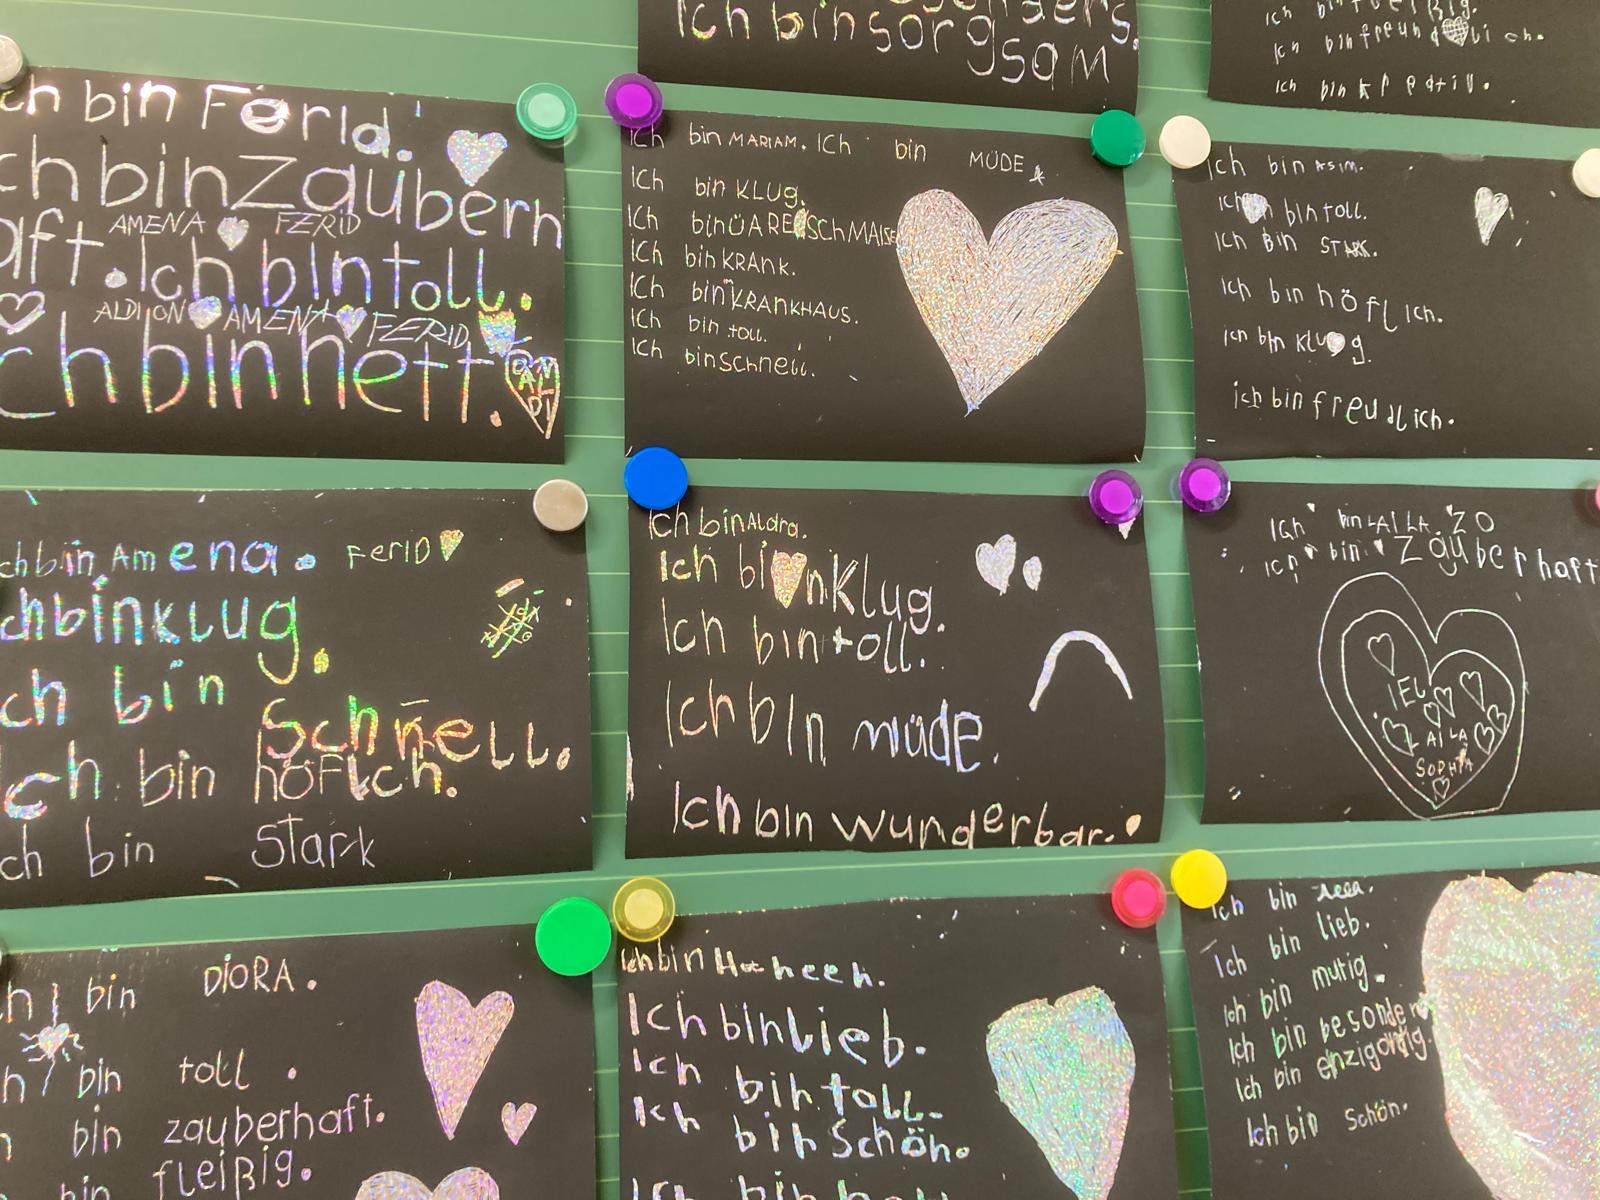 Ich bin sorgsam
Ich
Ich bin freundlich.
Ich bin kreativ.
ch bin Ferid.
ch bin Zaubern
aft. Ich bin toll.
AMENA FERID
ALDIJON AMENA FERID
ch bin nett.
Ich bin MARIAM. ICh bin MÜDE
Ich bin KLUG.
Ich
Ich bin KRANK.
Ich bin KRANKHAUS.
Ich bin toll.
Ich bin schnell.
Ich bin Asim.
Ich bin toll.
Ich Bin STARK.
Ich bin höflich.
Ich bin klug.
ich bin freudlich.
chbin Amena. FERID
chbinKLUG.
ch bin Schnell.
Ich bin höflch.
ch bin Stark
Ich bin Aldra.
Ich bin Klug.
Ich bin toll.
Ich bin müde.
Ich bin wunderbar.
Ich bin LAILA. ZO
Ich bin Zauberhaft
IEL
LAILA
SOPHIA
bin DiORA.
bin toll.
bin zauberhaft.
bin fleißig.
Ich bin
Ich bin lieb.
Ich bin toll.
Ich bin Schön.
Ich bin
Ich bin
Ich bin lieb.
Ich bin mutig.
Ich bin besonder
Ich bin einzigartig.
Ich bin Schön.